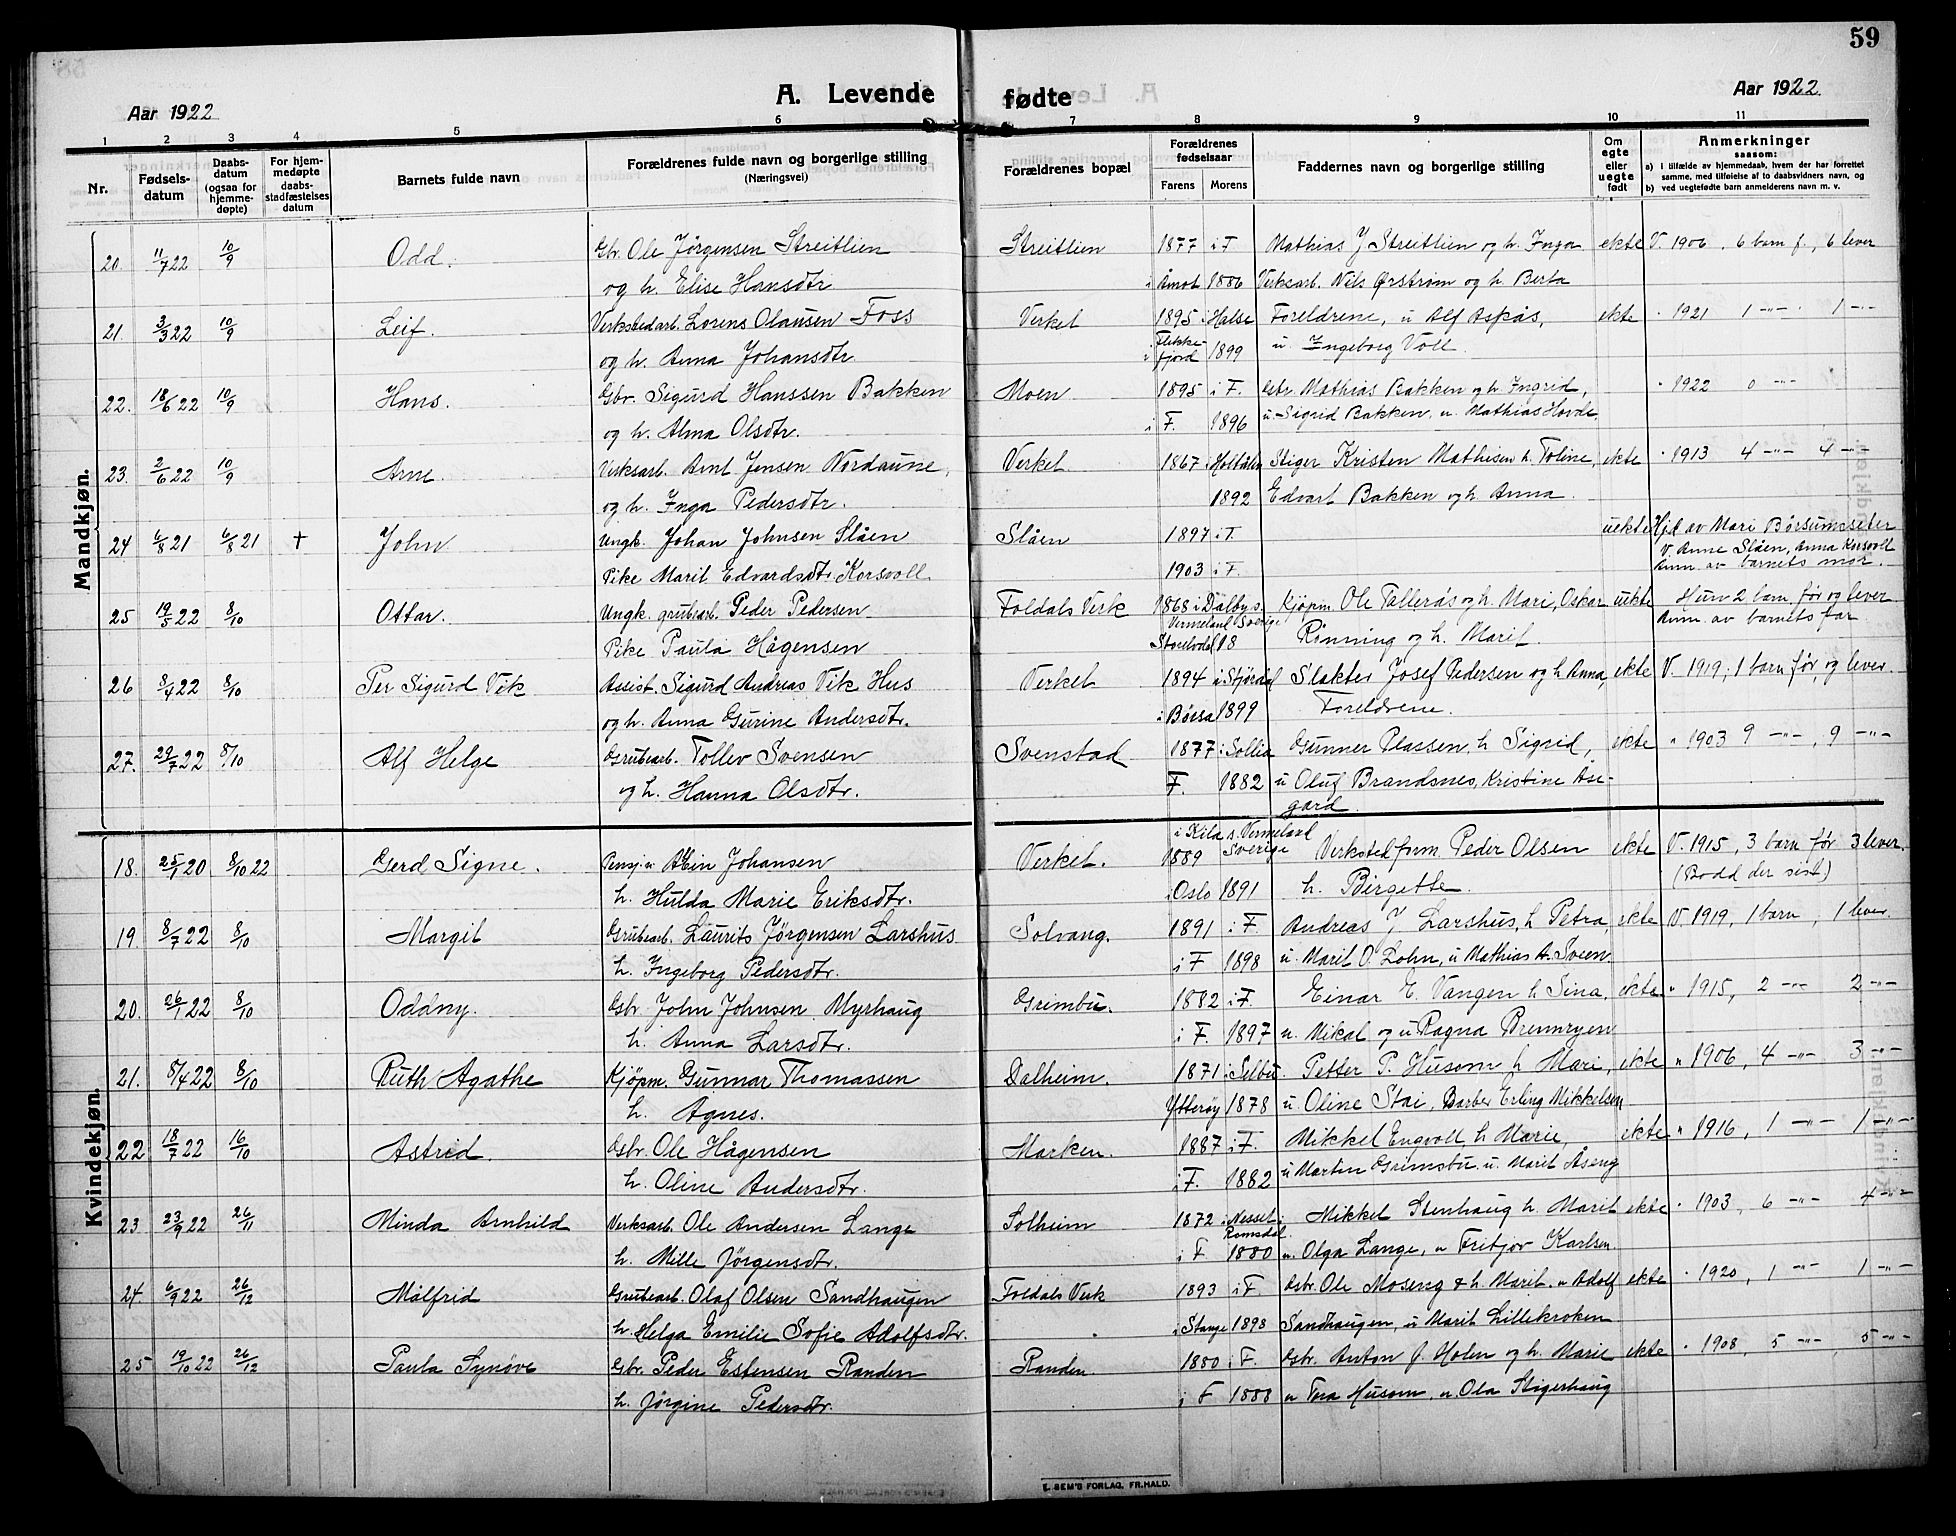 59
Aar 1922
A. Levende fødte
Aar 1922
1 2 3 4 5 6 7 8 9 10 11
Nr.
Fødselsdatum
Daabsdatum (ogsaa for hjemmedøpte)
For hjemmedøpte daabsstadfæstelses datum
Barnets fulde navn
Forældrenes fulde navn og borgerlige stilling
(Næringsvei)
Forældrenes bopæl
Forældrenes fødselsaar
Farens Morens
Faddernes navn og borgerlige stilling
Om egte eller uegte født
Anmerkninger
saasom:
a) i tilfælde av hjemmedaab, hvem der har forrettet samme, med tilføielse af to daabsvidners navn, og
b) ved uegtefødte barn anmelderens navn m. v.
Mandkjøn.
20. 11/7 22 10/9 Odd. Gbr. Ole Jörgensen Streitlien Streitlien 1877 i F Mathias J Streitlien og h. Inga ekte V. 1906, 6 barn f., 6 lever
og h. Elise Hansdtr i Åmot 1886 Verksarb. Nils Ørström og h Berta
21. 3/3 22 10/9 Leif. Verkstedarb. Lorens Olausen Foss Verket 1895 i Halse Foreldrene, u Alf Aspås, ekte " 1921 1 -"- 1 -"-
og h. Anna Johansdtr. i Flekkefjord 1899 u. Ingeborg Voll.
22. 18/6 22 10/9 Hans. Gbr. Sigurd Hanssen Bakken Moen 1895 i F. Gbr. Mathias Bakken og h. Ingrid, " 1922 0 -"-
og h. Alma Olsdtr. i F. 1896 u. Sigrid Bakken, u. Mathias Hovde
23. 2/6 22 10/9 Arne. Verksarb. Arnt Jensen Nordaune, Verket. 1867 i Holtålen Stiger Kristen Mathisen h. Toline, ekte " 1913 4 -"- 4 -"-
og h. Inga Pedersdtr. 1892 Edvart Bakken og h. Anna.
24 6/8 21 6/8 21 † John Ungk. Johan Johnsen Slåen Slåen 1897 i F. uekte Hjd av Mari Börsumseter
Pike Marit Edvardsdtr Korsvoll. 1903 i F. V. Anne Slåen, Anna Korsvoll
Anm. av barnets mor.
25 19/5 22 8/10 Ottar. Ungk. grubearb. Peder Pedersen Foldals Verk 1868 i Dalby s. Vermeland Sverige Kjöpm. Ole Tallerås og h. Mari, Oskar uekte Hun 2 barn før og lever
Pike Paula Hågensen Storelvdal 18 Rönning og h. Marit. Anm. av barnets far.
26 8/4 22 8/10 Per Sigurd Vik Assist. Sigurd Andreas Vik Hus Verket 1894 i Stjördal Slakter Josef Pedersen og h Anna, ekte V. 1919, 1 barn før, og lever.
og h. Anna Gurine Andersdtr. i Börsa 1899 Foreldrene.
27. 29/7 22 8/10 Alf Helge Grubearb. Tollev Svensen Svenstad 1877 i Sollia Gunner Plassen, h Sigrid, ekte " 1903 9 -"-, 9 -"-
og h. Hanna Olsdtr. F. 1882 u Oluf Brandsnes, Kristine Åsegard.
Kvindekjøn.
18. 25/1 20 8/10 22 Gerd Signe. Johansen Verket. 1889 i Kila s. Vermeland Sverige Verkstedform. Peder Olsen ekte V. 1915, 3 barn før 3 lever.
h. Hulda Marie Eriksdtr. i Oslo 1891 h. Birgette. (Bodd der sist)
19 8/7 22 8/10 Margit Grubearb. Laurits Jörgensen Larshus Solvang. 1891 i F. Andreas J Larshus, h Petra, ekte V. 1919, 1 barn, 1 lever
h. Ingeborg Pedersdtr. i F 1898 u. Marit O. Lohn, u Mathias A. Sveen
20. 26/1 22 8/10 Oddny. Gbr. John Johnsen Myrhaug Grimbu. 1882 i F. Einar E. Vangen h Sina, ekte " 1915, 2 -"- 2 -"-
h. Anna Larsdtr. i F. 1897 u. Mikal og u Ragna Brennryen
21. 8/4 22 8/10 Ruth Agathe Kjöpm. Gunnar Thomassen Dalheim. 1871 i Selbu. Petter P. Husom h Mari, ekte " 1906, 4 -"- 3 -"-
h. Agnes. Ytteröy 1878 u. Oline Stai, Barber Erling Mikkelsen
22 18/7 22 16/10 Astrid. Gbr. Ole Hågensen Marken. 1887 i F. Mikkel Engvoll h Marie, ekte " 1916, 1 -"- 1 -"-
h. Oline Andersdtr. i F. 1882 u Martin Grimsbu. u. Marit Åseng
23 23/9 22 26/11 Minda Arnhild Verksarb. Ole Andersen Lange Solheim 1872 i Nesset i Romsdal Mikkel Stenhaug h. Marit ekte " 1903, 6 -"- 4 -"-
h. Mille Jörgensdtr. i F 1880 u. Olga Lange, u Fritjov Karlsen.
24. 6/9 22 26/12 Målfrid Grubearb. Olaf Olsen Sandhaugen Foldals Verk 1893 i F Gbr. Ole Moseng & h. Marit. u Adolf ekte " 1920, 1 -"- 1 -"-
h. Helga Emilie Sofie Adolfsdtr. i Stange 1898 Sandhaugen, u Marit Lillekroken
25 19/10 22 26/12 Paula Synöve Gbr. Peder Estensen Randen Randen. 1880 i F. Gbr. Anton J. Holen og h. Marie ekte " 1908, 5 -"-, 5 -"-
h. Jörgine Pedersdtr. i F 1888 u Tora Husom, u. Ola Stigerhaug
E. SEM'S FORLAG, FR.HALD.